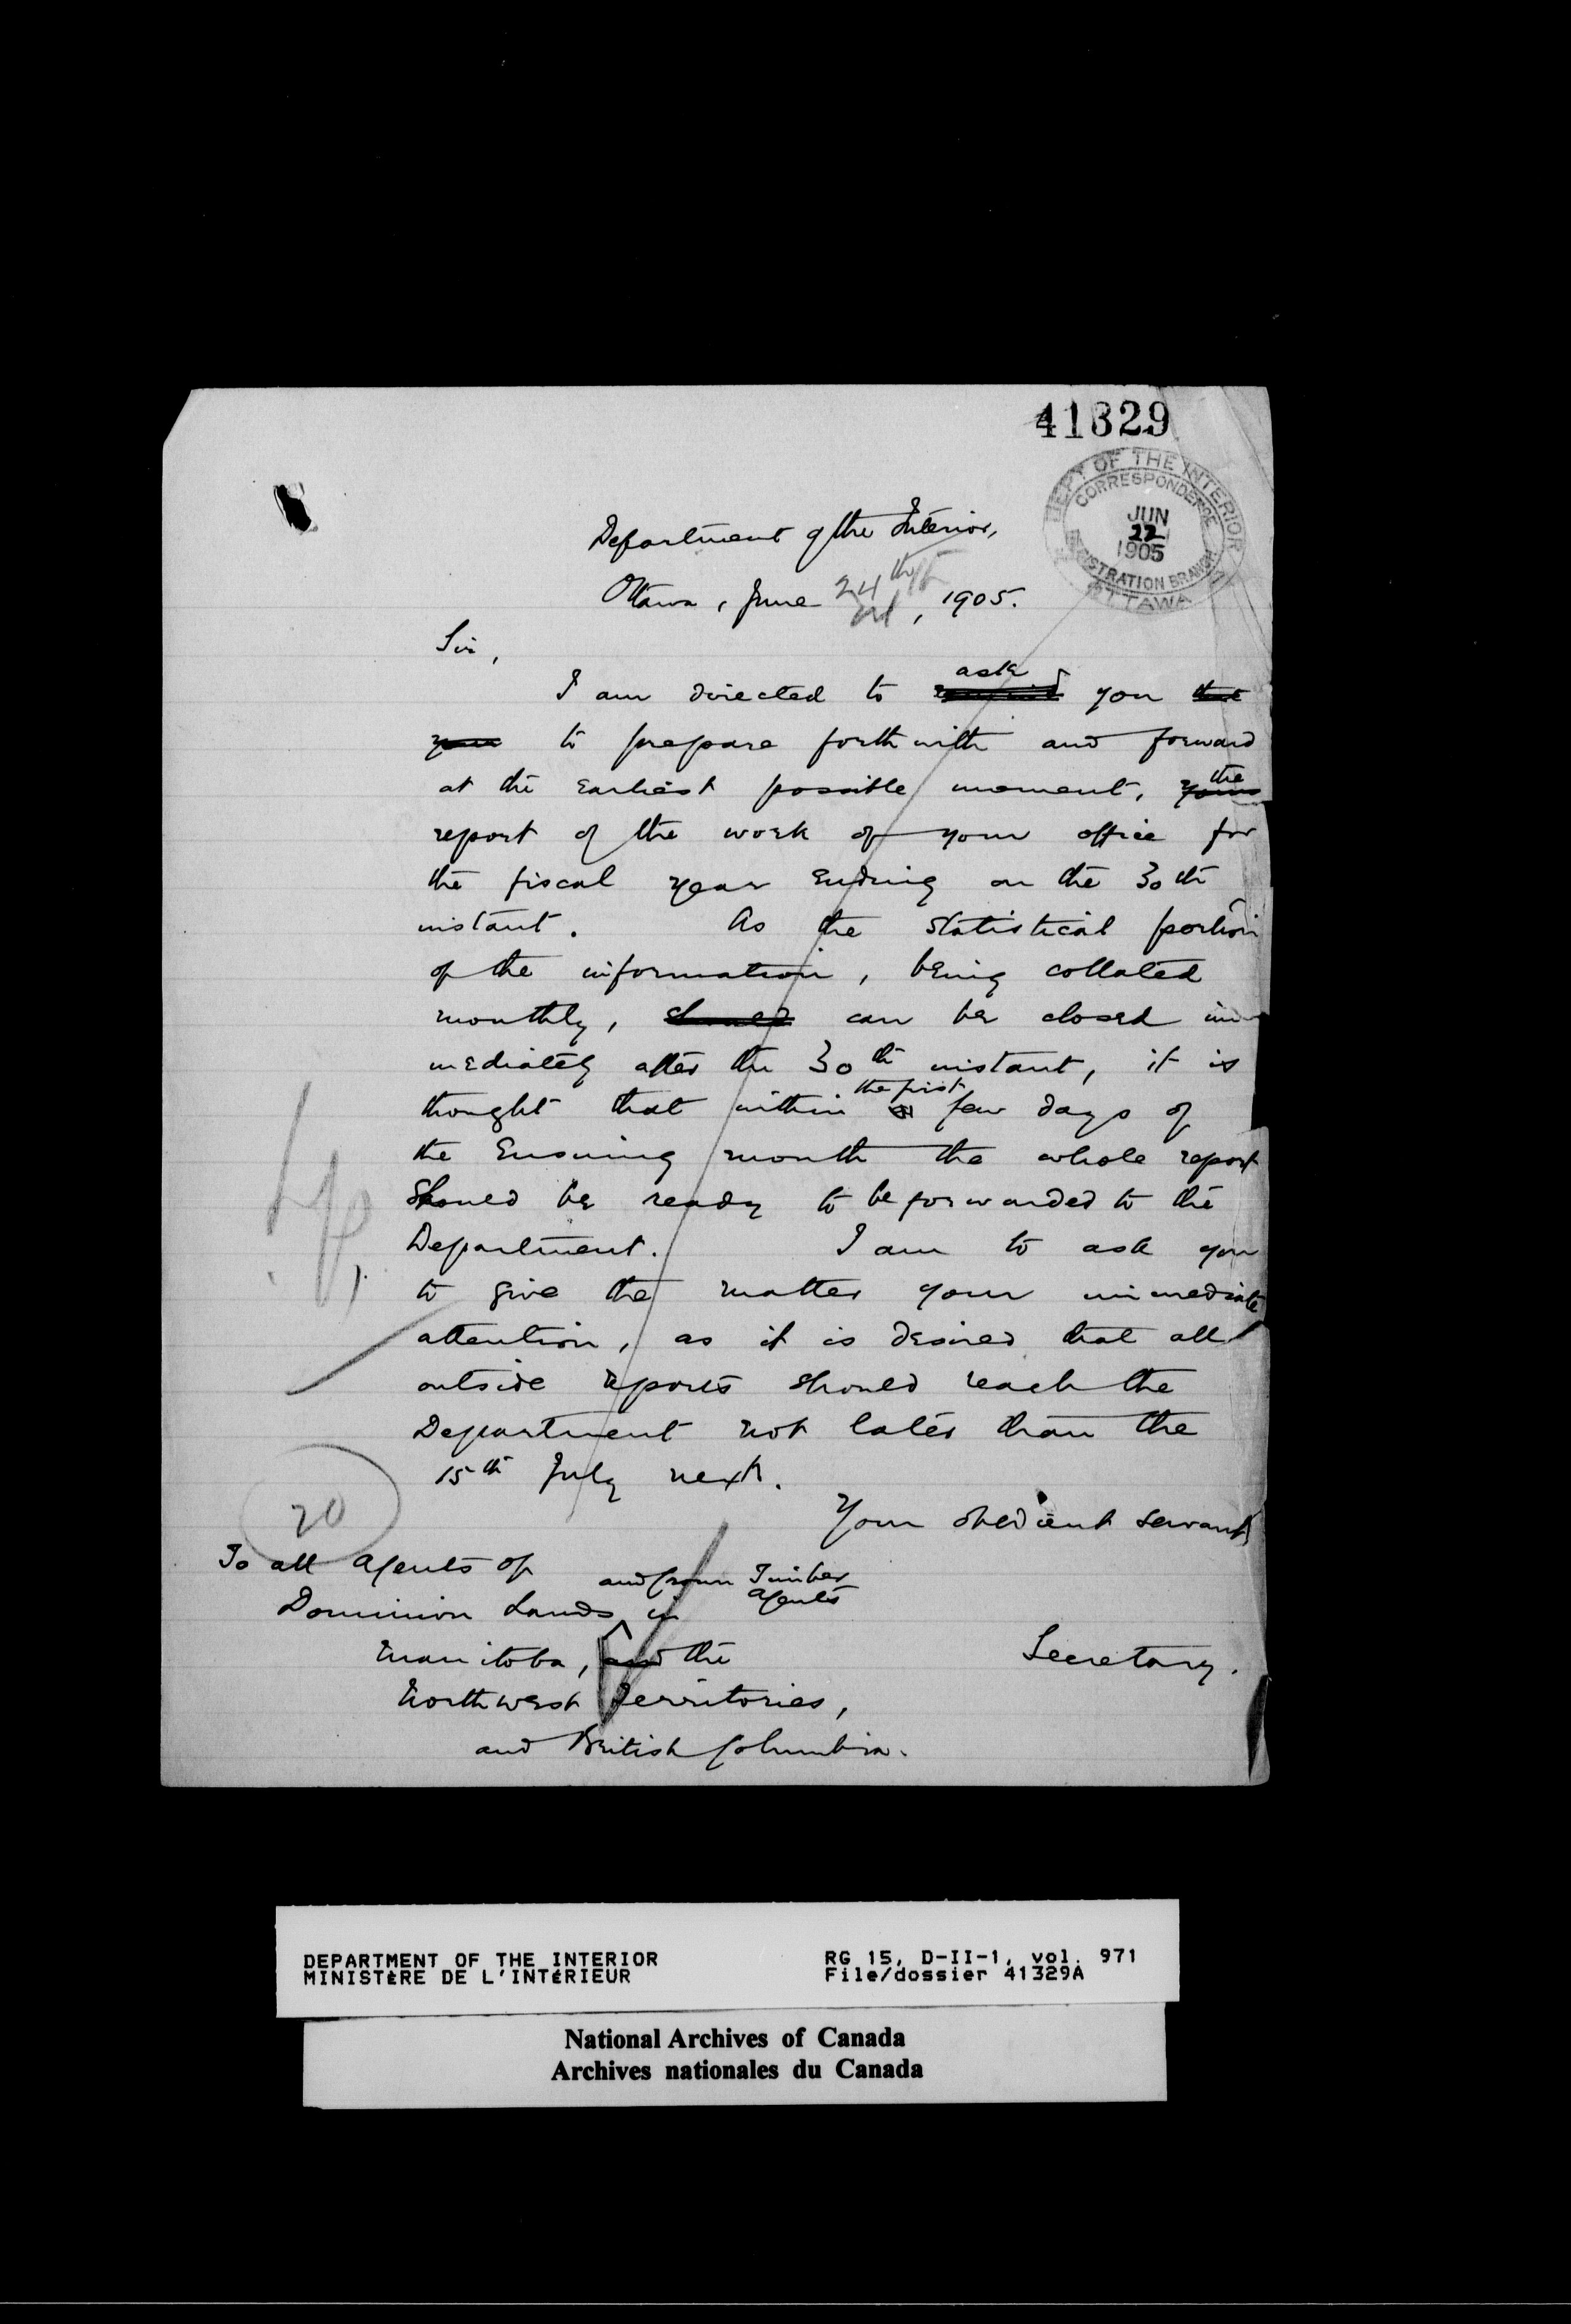 41329
DEPT OF THE INTERIOR
CORRESPONDENCE
JUN
22
1905
REGISTRATION BRANCH
OTTAWA
Department of the Interior,
Ottawa, June 24th, 1905.
Sir,
ask
I am directed to you that
you to prepare forthwith and forward
the
at the earliest possible moment, your
report of the work of your office for
the fiscal year ending on the 30th
instant. As the statistical portion
of the information, being collated
monthly, should can be closed im
mediately after the 30th instant, it is
the first
thought that within a few days of
the ensuing month the whole report
should be ready to be forwarded to the
Department. I am to ask you
to give the matter your immediate
attention, as it is desired that all
outside reports should reach the
Department not later than the
15th July next.
Your obedient servant,
20
To all Agents of
and Crown Timber
Agents
Dominion Lands in
Manitoba, and the
Secretary.
Northwest Territories,
and British Columbia.
DEPARTMENT OF THE INTERIOR RG 15, D-II-1, vol. 971
MINISTÈRE DE L'INTÉRIEUR File/dossier 41329A
National Archives of Canada
Archives nationales du Canada